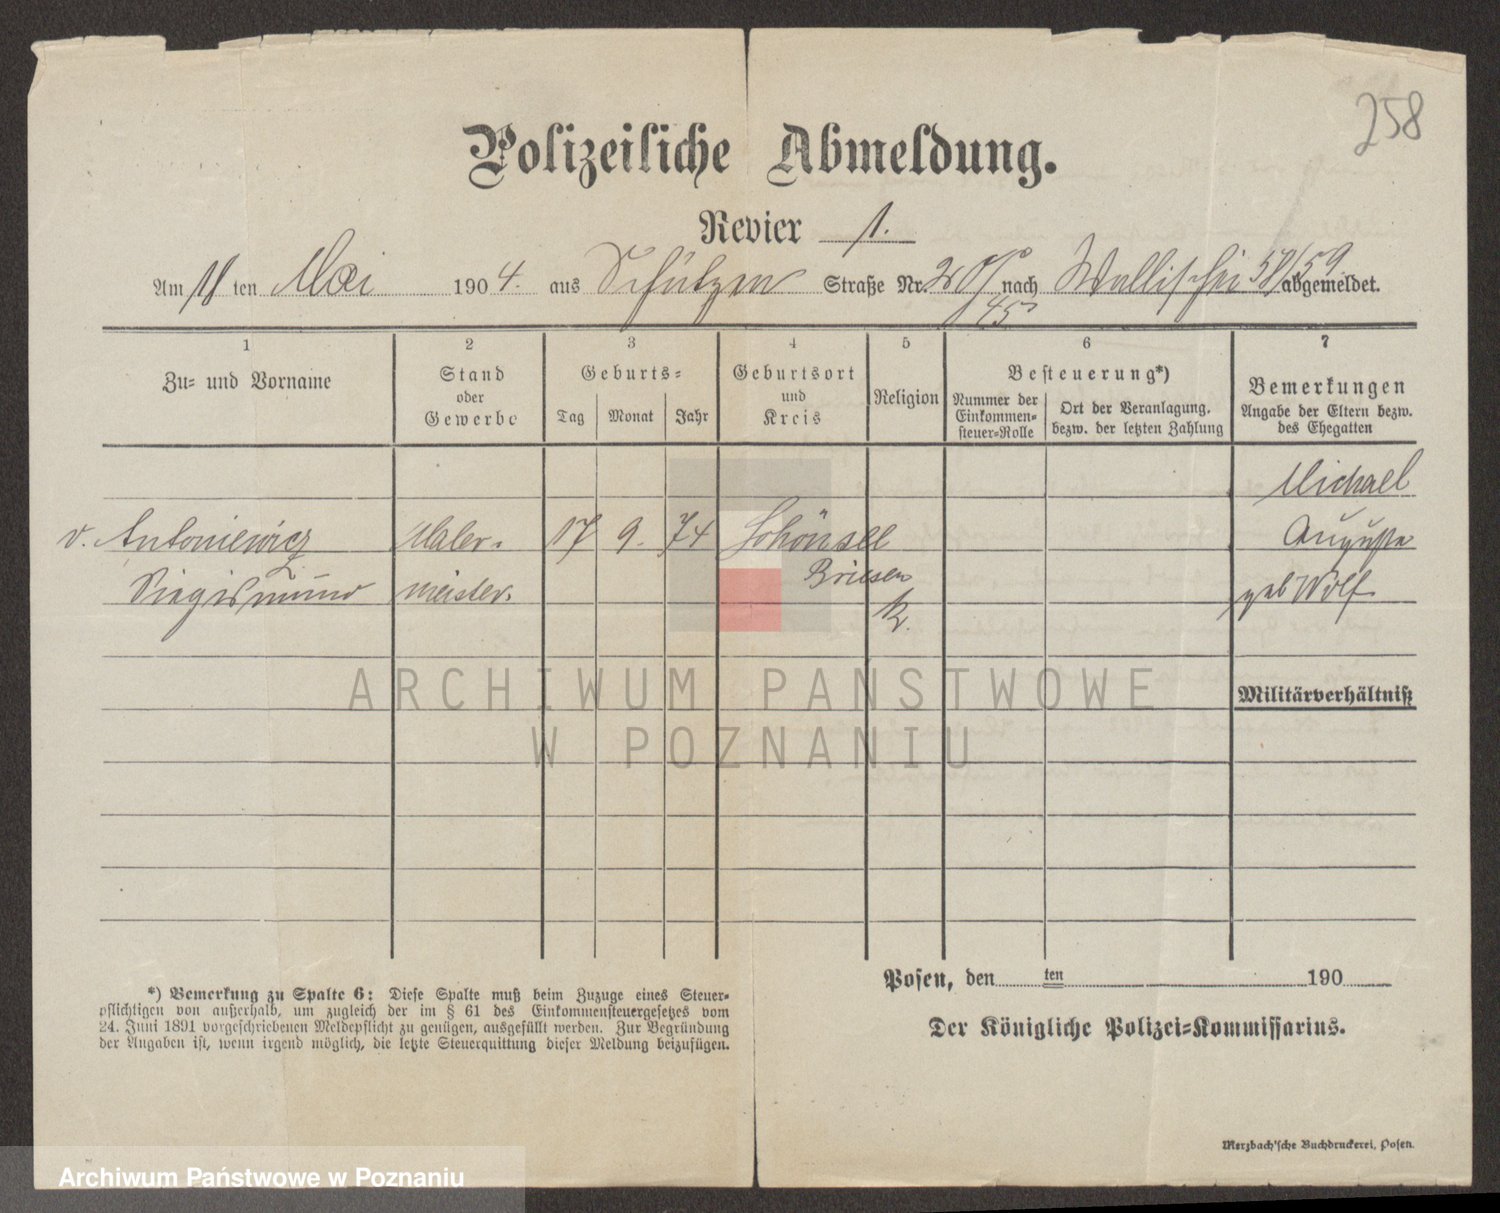 258
Polizeiliche Abmeldung.
Revier 1.
Am 11 ten Mai 1904. aus Schützen Straße Nr. nach Wallischei 58/59 abgemeldet.
45
1 2 3 4 5 6 7
Zu- und Vorname
Stand oder Gewerbe
Geburts-
Tag Monat Jahr
Geburtsort und Kreis
Religion
Besteuerung*)
Nummer der Einkommen-steuer-Rolle
Ort der Veranlagung, bezw. der letzten Zahlung
Bemerkungen
Angabe der Eltern bezw. des Ehegatten
Michael
v. Antoniewicz Maler- 17 9. 74 Schönsee Auguste
Siegismund meister. Briesen geb Wolf
k.
Militärverhältniß
ARCHIWUM PAŃSTWOWE
W POZNANIU
*) Bemerkung zu Spalte 6: Diese Spalte muß beim Zuzuge eines Steuer-
pflichtigen von außerhalb, um zugleich der im § 61 des Einkommensteuergesetzes vom
24. Juni 1891 vorgeschriebenen Meldepflicht zu genügen, ausgefüllt werden. Zur Begründung
der Angaben ist, wenn irgend möglich, die letzte Steuerquittung dieser Meldung beizufügen.
Posen, den ten 190
Der Königliche Polizei-Kommissarius.
Merzbach'sche Buchdruckerei, Posen.
Archiwum Państwowe w Poznaniu